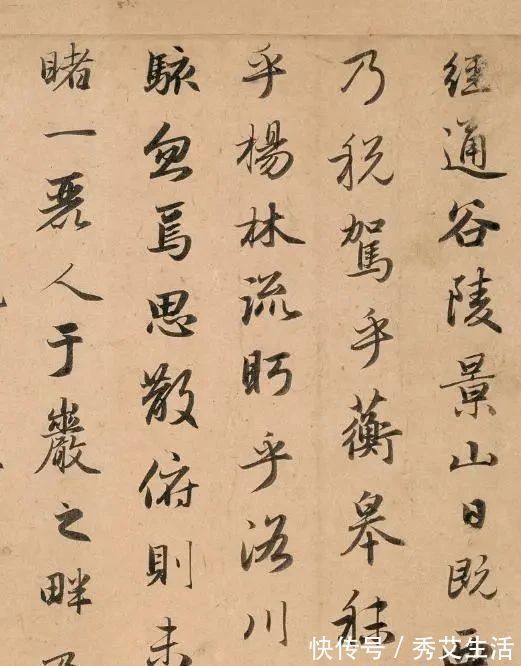 經通谷陵景山日既
乃税駕乎蘅皋秣
乎楊林流眄乎洛川
駭忽焉思散俯則未
睹一麗人于巖之畔乃
快传号 / 秀艾生活